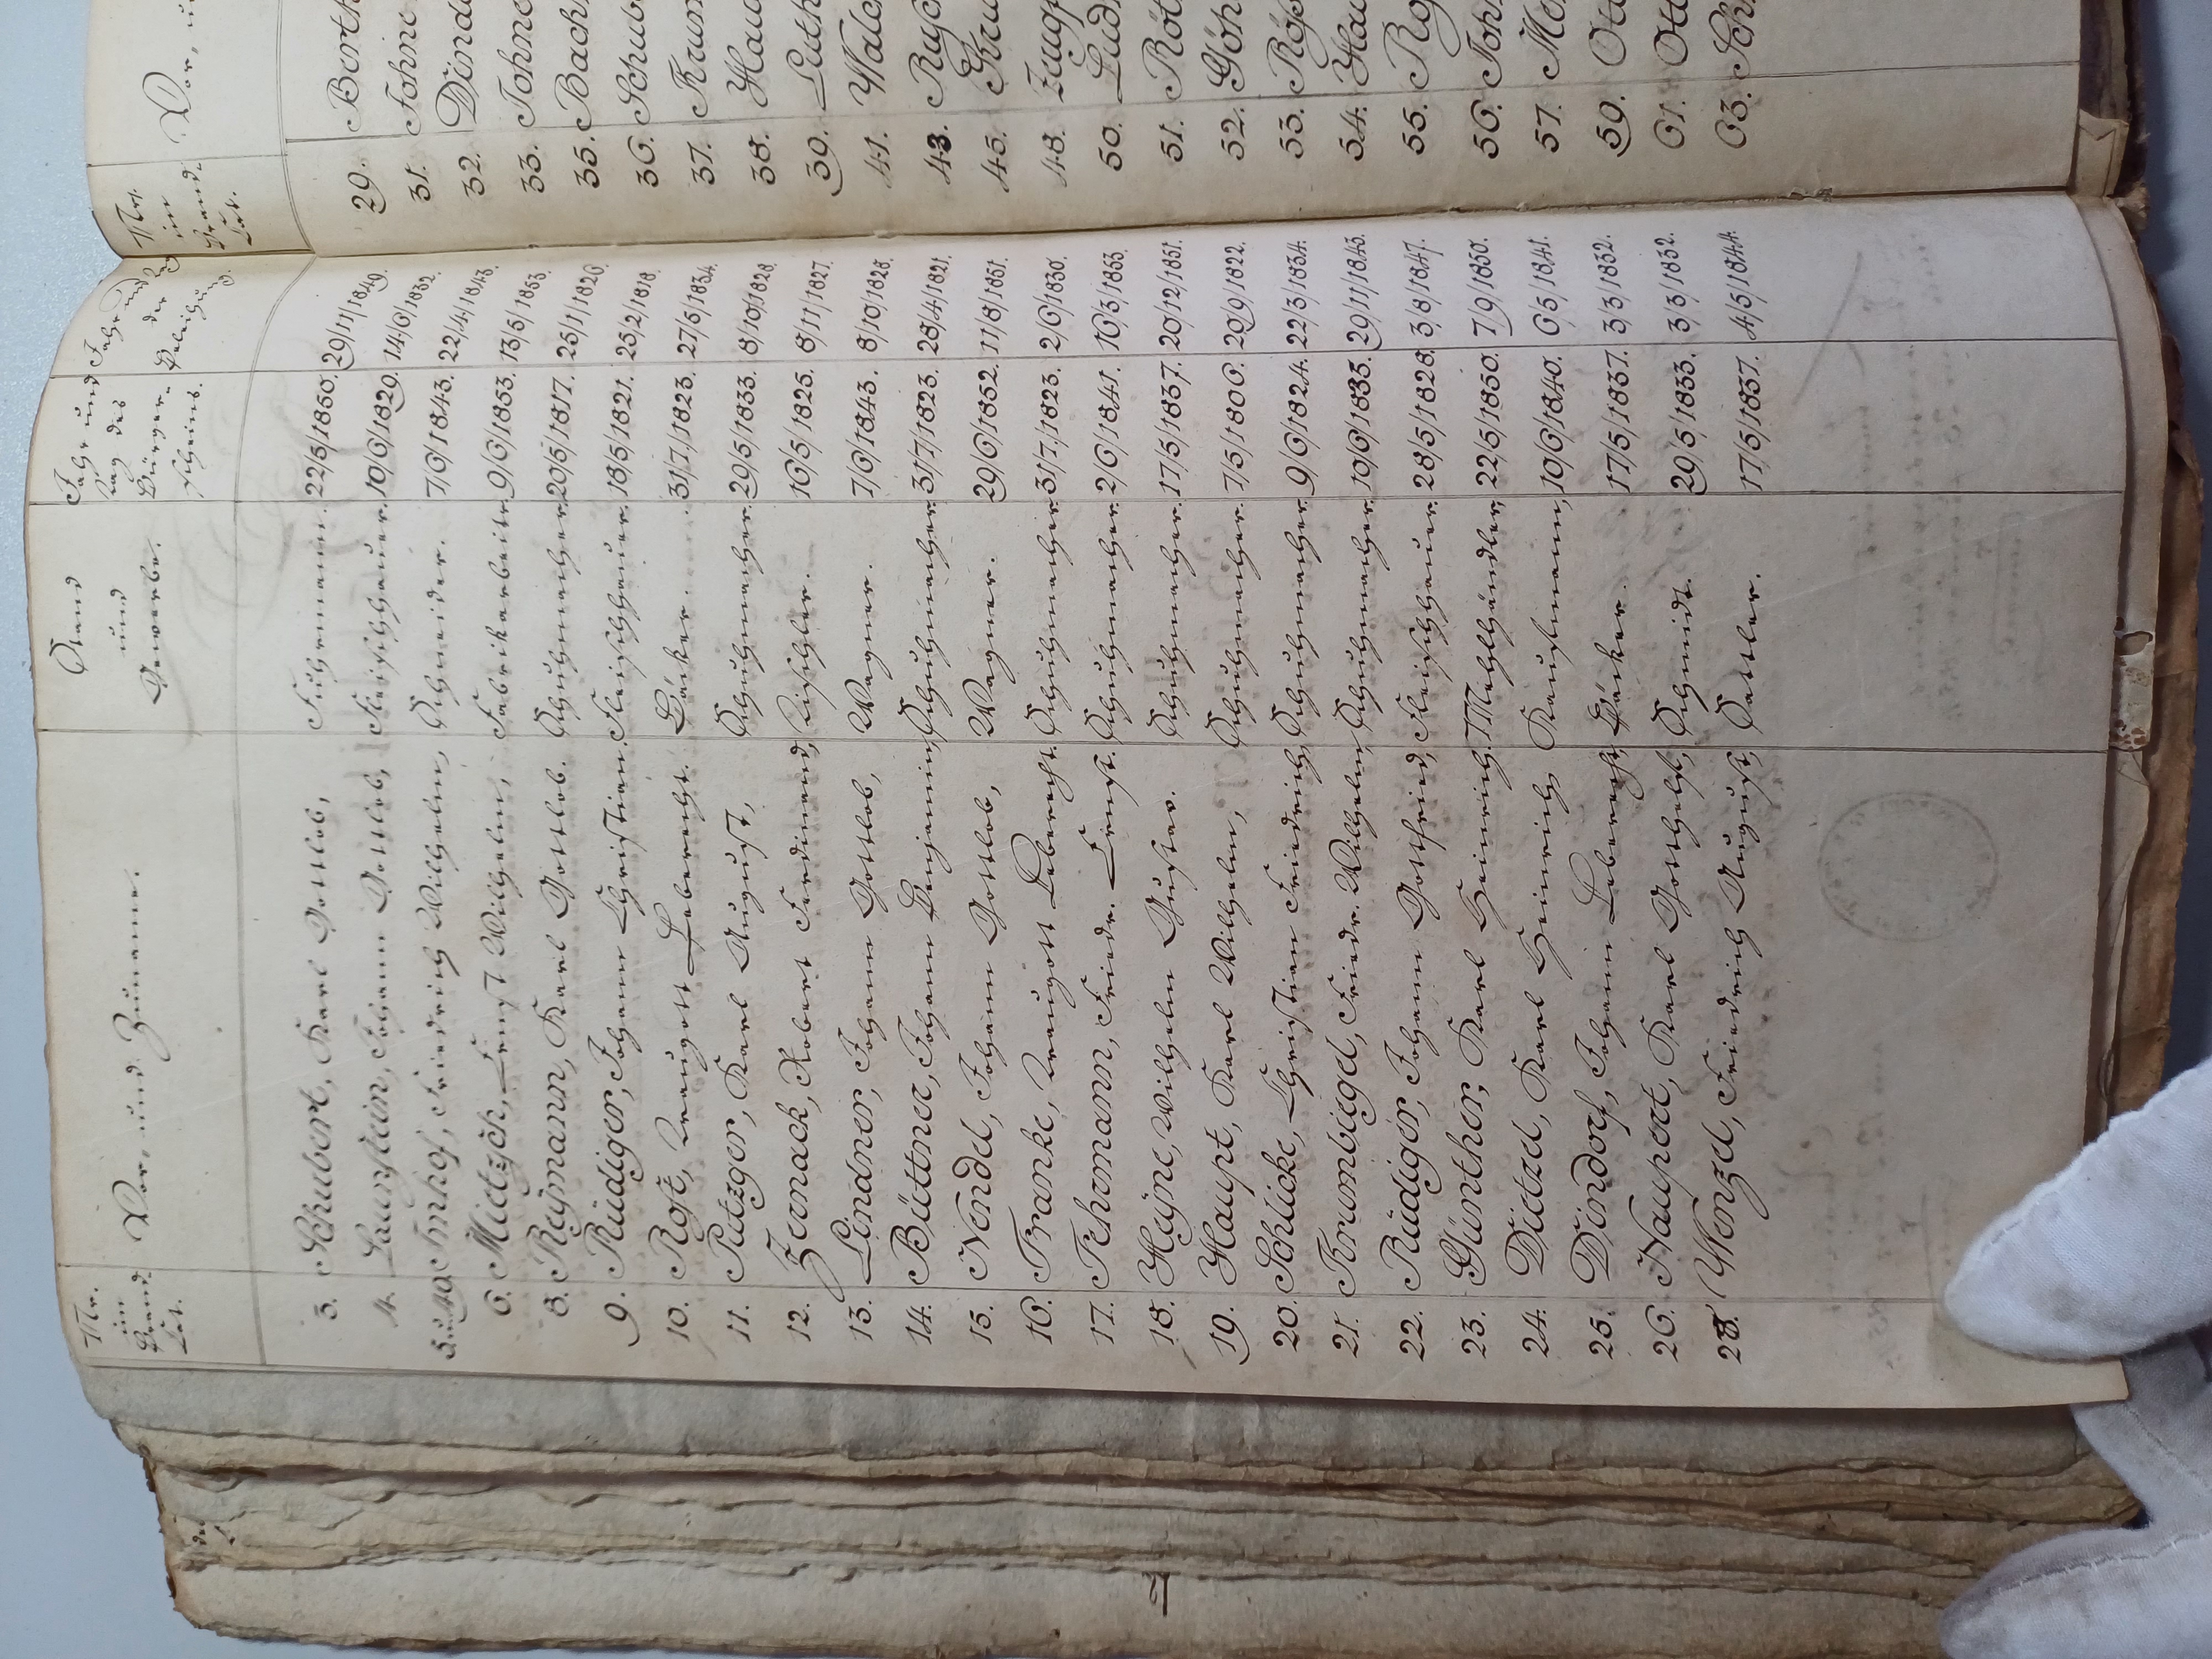 Nr. im Brand Cat. Vor- und Zuname. Stand und Gewerbe. Jahr und Tag des Bürgerscheins. Jahr und Tag der Beleihung.
3. Schubert, Karl Gottlieb, Fuhrmann. 22/5/1850. 29/11/1849.
4. Launstein, Johann Gottlob, Fleischhauer. 10/6/1829. 14/6/1832.
5. u. 49 Imhof, Friedrich Wilhelm, Schneider. 7/6/1843. 22/4/1843.
6. Mietzsch, Ernst Wilhelm, Fabrikarbeitr. 9/6/1853. 13/5/1853.
8. Reÿmann, Karl Gottlob. Schuhmacher. 20/5/1817. 25/1/1820.
9. Rüdiger, Johann Christian. Fleischhauer. 18/5/1821. 25/2/1818.
10. Rost, Traugott Leberecht. Bäcker. 31/7/1823. 27/5/1834.
11. Rutzger, Karl August, Schuhmacher. 29/5/1833. 8/10/1828.
12. Zernack, Robert Ferdinand, Tischler. 10/5/1825. 8/11/1827.
13. Lindner, Johann Gottlob, Wagner. 7/6/1843. 8/10/1828.
14. Büttner, Johann Benjamin, Schuhmacher. 31/7/1823. 28/4/1821.
15. Nendel, Johann Gottlob, Wagner. 29/6/1852. 11/8/1851.
16. Franke, Traugott Leberecht. Schuhmacher. 31/7/1823. 2/6/1830.
17. Tehomann, Friedr. Ernst. Schuhmacher. 2/6/1841. 16/3/1853.
18. Heÿne, Wilhelm Gustav. Schuhmacher. 17/5/1837. 20/12/1851.
19. Haupt, Karl Wilhelm, Schuhmacher. 7/5/1806. 20/9/1822.
20. Schlicke, Christian Friedrich, Schuhmacher. 9/6/1824. 22/3/1834.
21. Krumbiegel, Friedr. Wilhelm, Schuhmacher. 10/6/1835. 29/11/1843.
22. Rüdiger, Johann Gottfried, Fleischhauer. 28/5/1828. 3/8/1847.
23. Günther, Karl Heinrich. Mehlhändler, 22/5/1850. 7/9/1850.
24. Dietzel, Karl Heinrich, Kaufmann, 10/6/1840. 6/5/1841.
25. Dindorf, Johann Leberecht, Bäcker. 17/5/1837. 3/3/1832.
26. Naupert, Karl Gotthelf, Schmidt. 29/5/1833. 3/3/1832.
28. Wenzel, Friedrich August, Sattler. 17/5/1837. 4/5/1844.
Nr. im Brand Cat. Vor- u
29. Berth
31. Johne
32. Dinda
33. Johne
35. Bach
36. Schub
37. Krum
38. Hau
39. Luth
41. Walc
43. Rusc
45. Kru
48. Zaug
50. Lud
51. Röt
52. Göh
53. Röp
54. Hau
55. Ro
56. Joh
57. Me
59. Ott
61. Ott
63. Sch